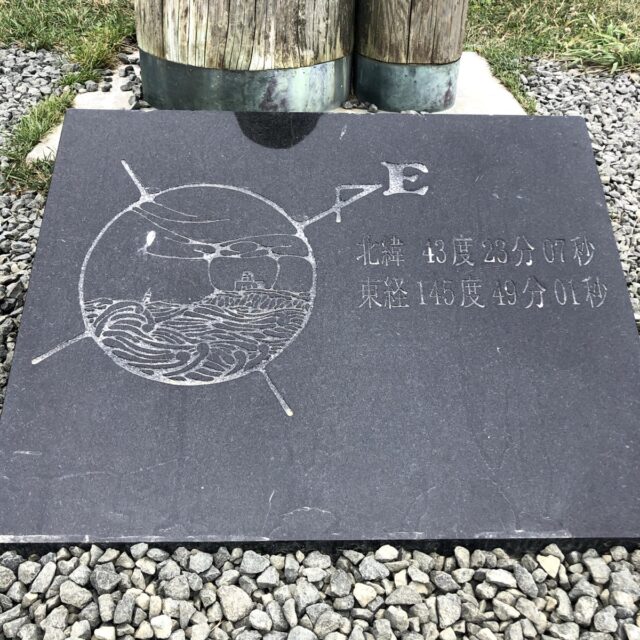 E
北緯 43度 23分 07秒
東経 145度 49分 01秒